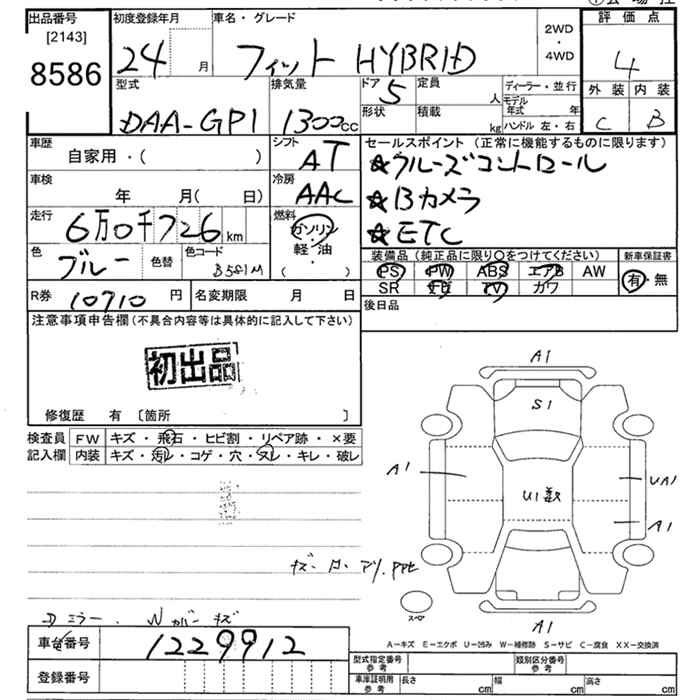 出品番号
[2143]
8586
初度登録年月
24 月
車名・グレード
フィット HYBRID
2WD
・
4WD
評価点
4
外装 内装
C B
型式
DAA-GP1
排気量
1300cc
ドア 5
形状
定員 人
積載 kg
ディーラー・並行
モデル年式 年
ハンドル 左・右
車歴
自家用・( )
シフト
AT
車検
年 月( 日)
冷房
AAC
走行
6万0千726km
燃料
ガソリン
・
軽・油
( )
色
ブルー
色替
色コード
B581M
R券 10710 円
名変期限 月 日
セールスポイント(正常に機能するものに限ります)
☆クルーズコントロール
☆Bカメラ
☆ETC
装備品(純正品に限り○をつけてください)
新車保証書
PS PW ABS エアB AW
SR TV カワ
有・無
後日品
注意事項申告欄(不具合内容等は具体的に記入して下さい)
初出品
修復歴 有 〔箇所 〕
検査員記入欄
FW キズ・飛石・ヒビ割・リペア跡・×要
内装 キズ・汚レ・コゲ・穴・スレ・キレ・破レ
A1
S1
A1
U1数
UA1
A1
スペア
A1
Dミラー、Nカバーキズ
A－キズ E－エクボ U－凹み W－補修跡 S－サビ C－腐食 XX－交換済
車台番号
1229912
登録番号
型式指定番号
参考
類別区分番号
参考
車庫証明用
参考
長さ cm
幅 cm
高さ cm